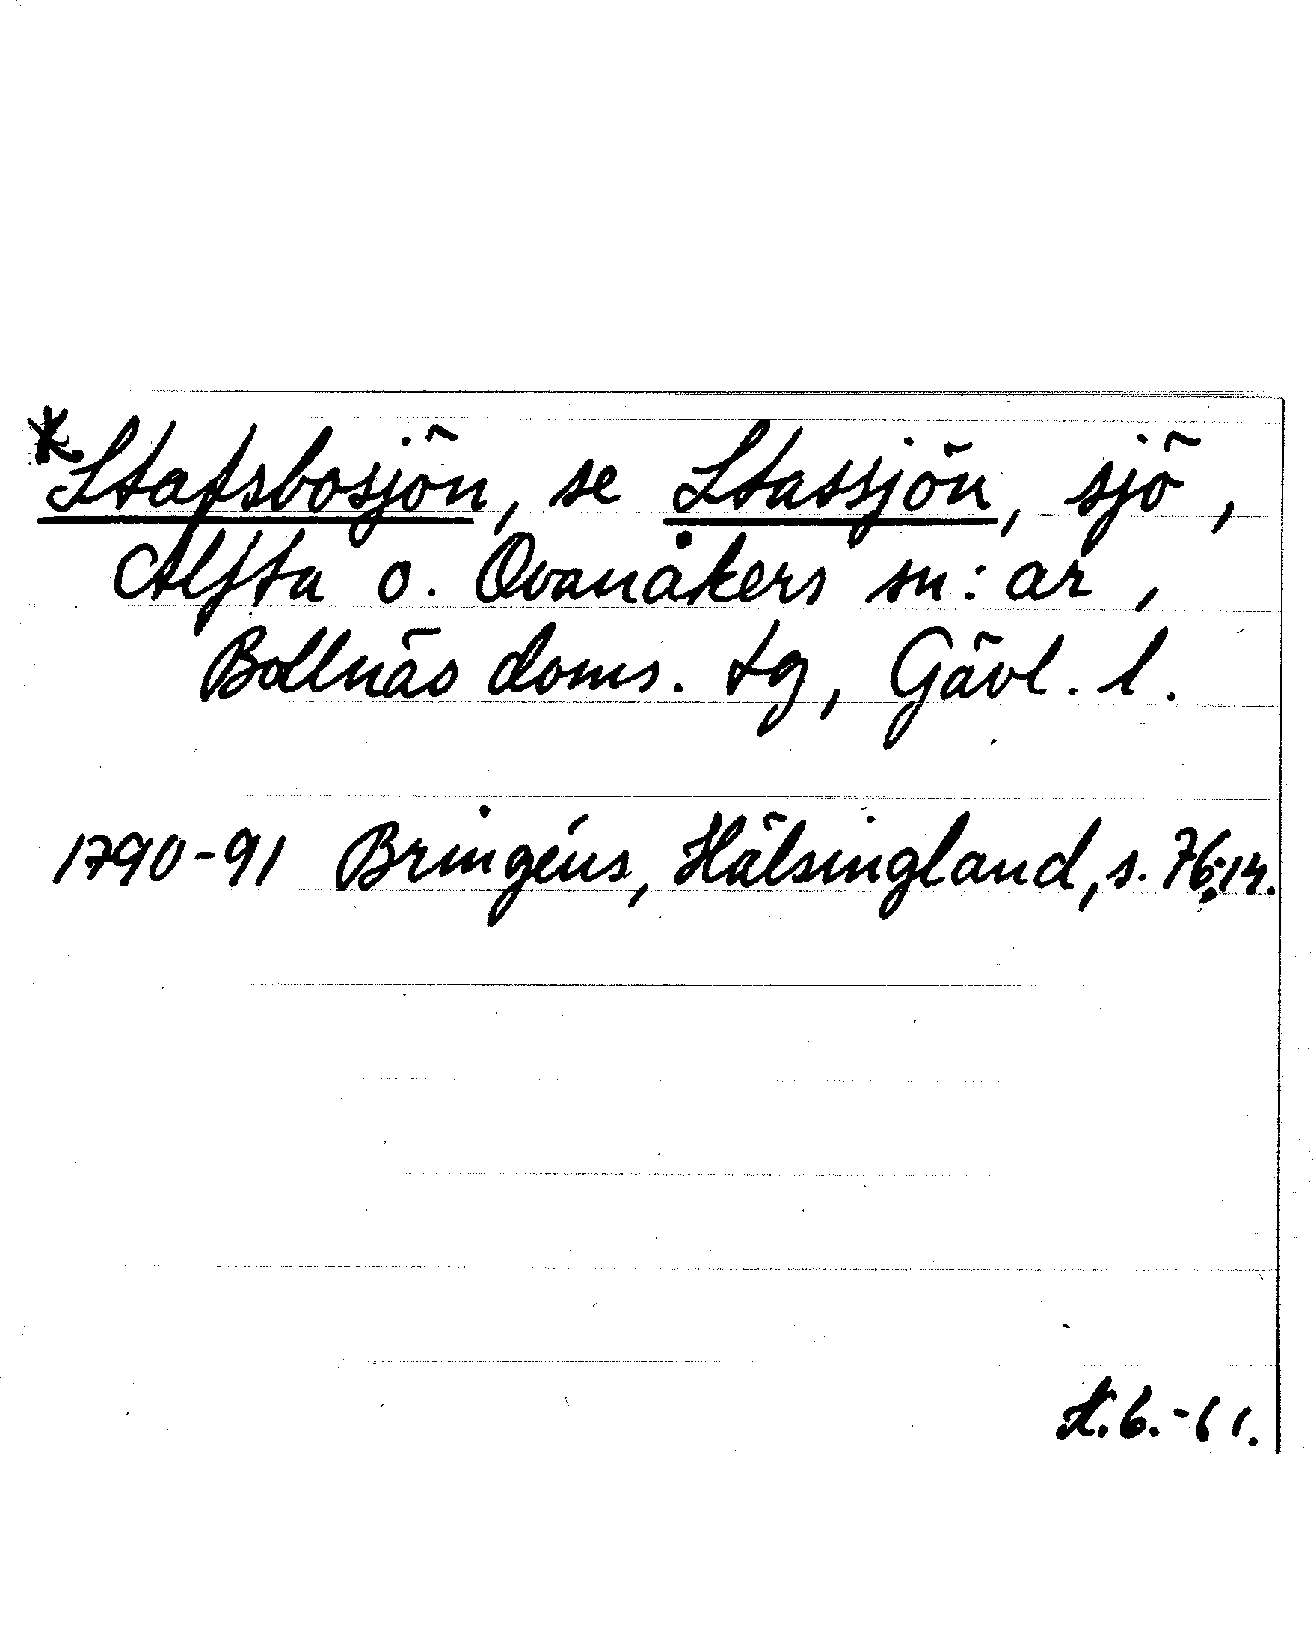 *Stafsbosjön, se Stassjön, sjö,
Alfta o. Ovanåkers sn:ar,
Bollnäs doms. tg, Gävl. l.
1790-91 Bringéus, Hälsingland, s. 76;14.